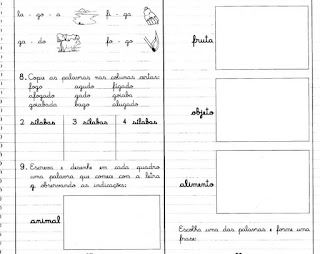 la - go - a
fi - ga
ga - do
fo - go
8. Copie as palavras nas colunas certas:
fogo agudo fígado
afogado gado goiaba
goiabada bago alugado
2 sílabas 3 sílabas 4 sílabas
9. Escreva e desenhe em cada quadro
uma palavra que comece com a letra
g, observando as indicações:
animal
fruta
objeto
alimento
Escolha uma das palavras e forme uma
frase: